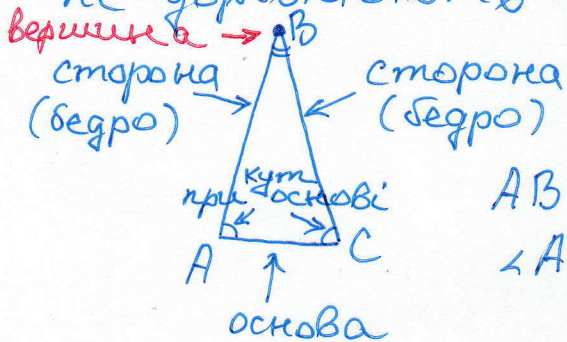 не
вершина → B
сторона
(бедро)
сторона
(бедро)
кут
при основі
AB
A
C
∠A
основа